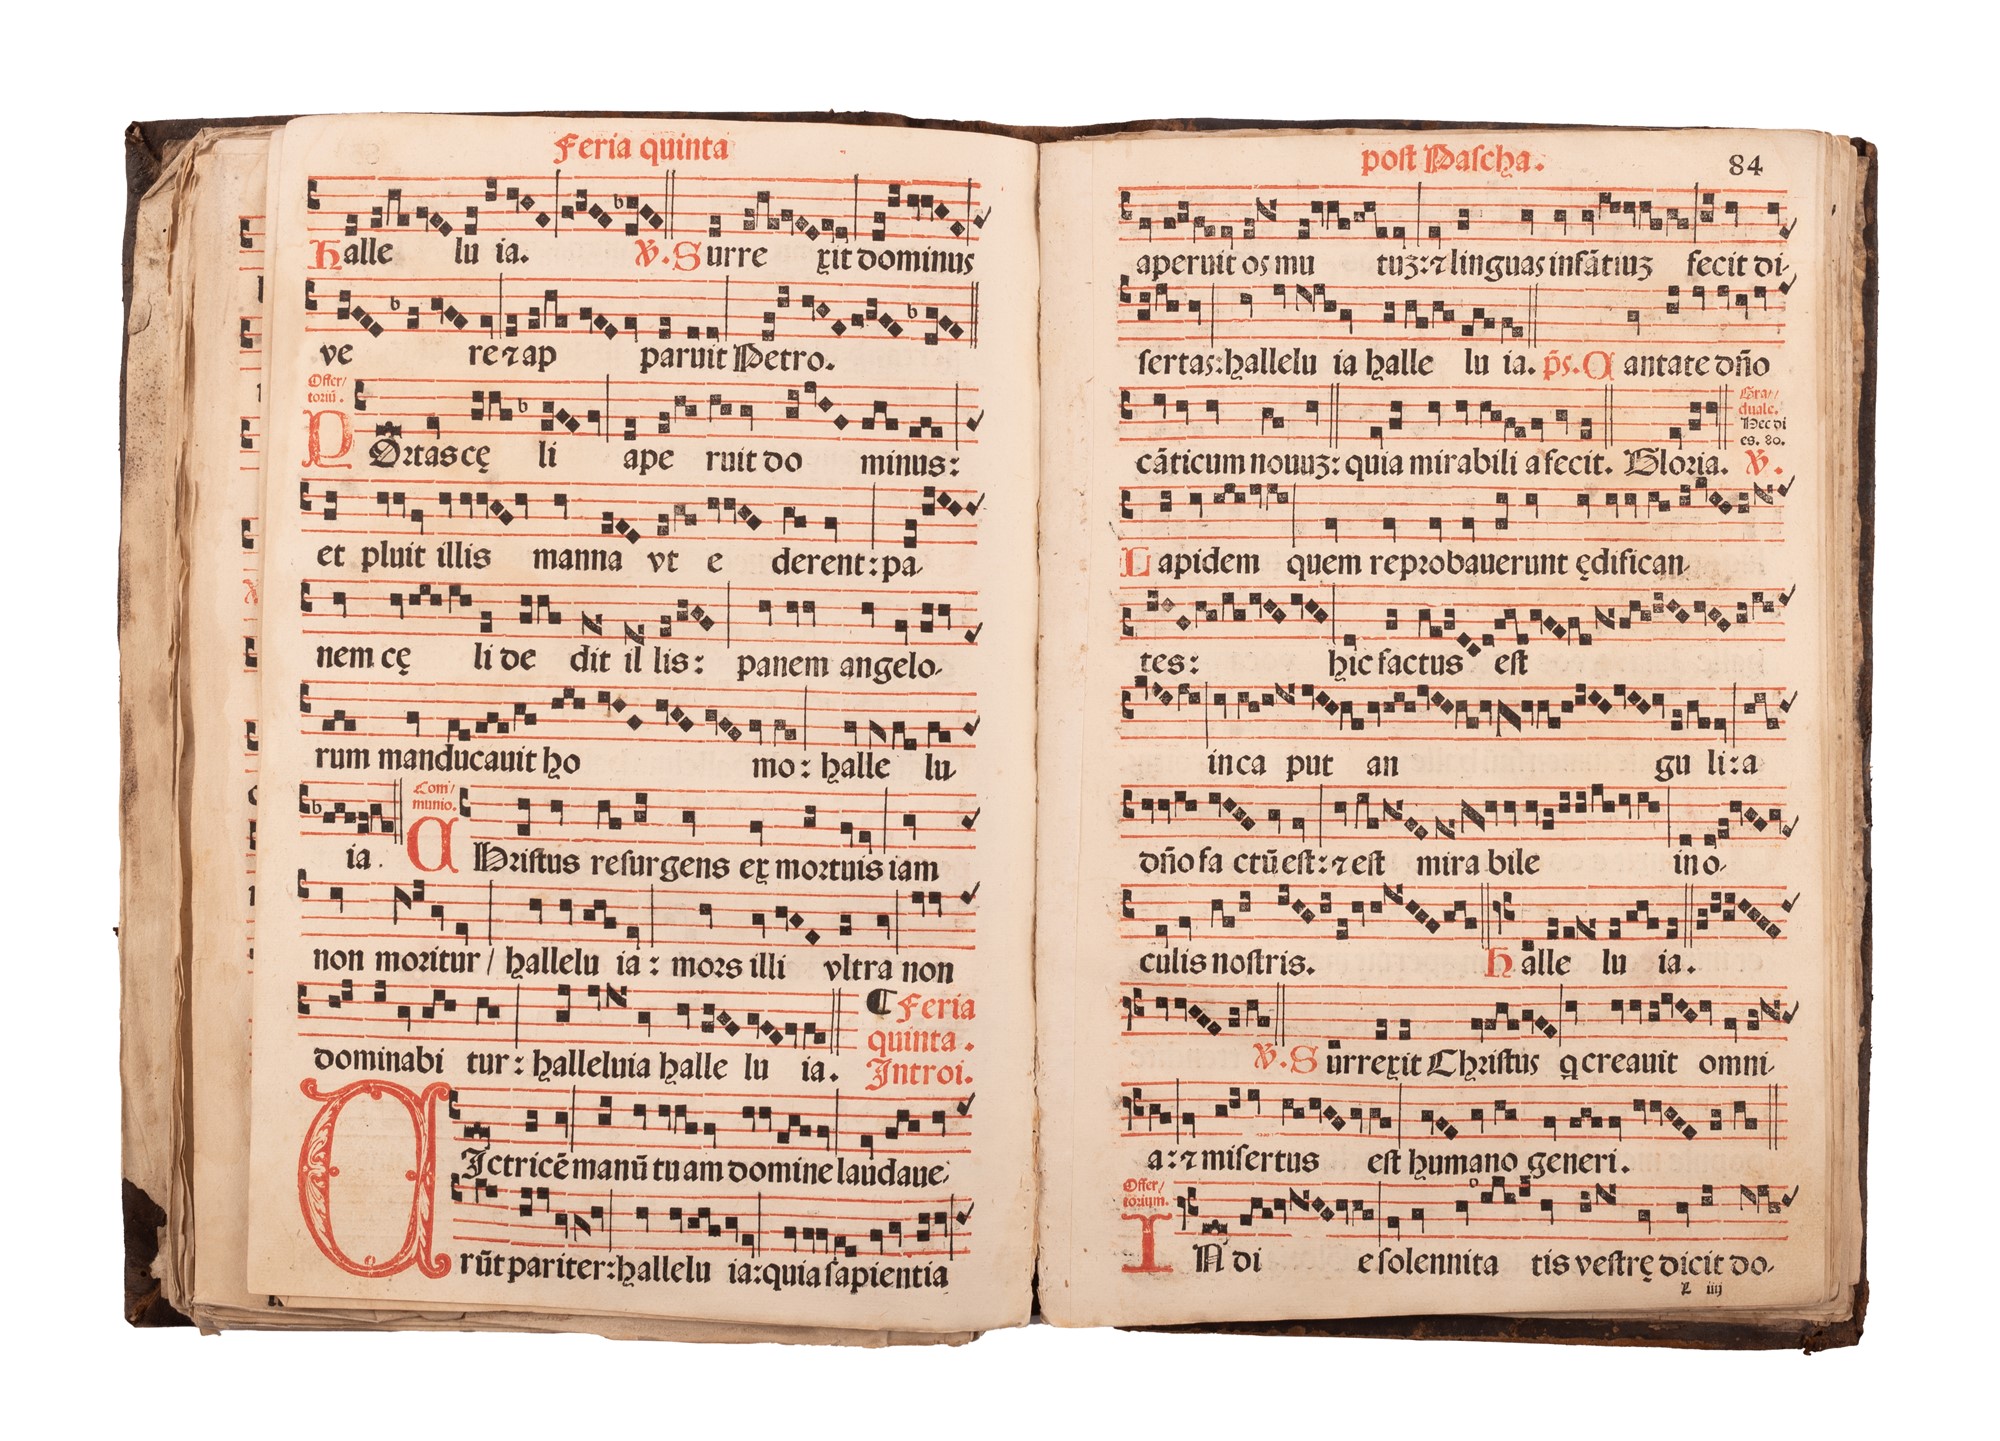 Feria quinta
Halle lu ia. ℣. Surre xit dominus
ve re ⁊ ap paruit Petro.
Offer/
toriū.
POrtas cę li ape ruit do minus:
et pluit illis manna vt e derent: pa/
nem cę li de dit il lis: panem angelo/
rum manducauit ho mo: halle lu/
Com/
munio.
ia. CHristus resurgens ex mortuis iam
non moritur / hallelu ia: mors illi vltra non
dominabi tur: halleluia halle lu ia.
¶ Feria
quinta.
Introi.
VIctricē manū tu am domine laudaue/
rūt pariter: hallelu ia: quia sapientia
post Pascha. 84
aperuit os mu tuʒ: ⁊ linguas infātiuʒ fecit di/
sertas: hallelu ia halle lu ia. p̄s. Cantate dño
cāticum nouuʒ: quia mirabili a fecit. Gloria. ℣.
Gra//
duale.
Hec di
es. 80.
Lapidem quem reprobauerunt ędifican/
tes: hic factus est
in ca put an gu li: a
dño fa ctū est: ⁊ est mira bile in o/
culis nostris. Halle lu ia.
℣. Surrexit Christus q creauit omni/
a: ⁊ misertus est humano generi.
Offer/
torium.
IN di e solennita tis vestrę dicit do/
L iiij